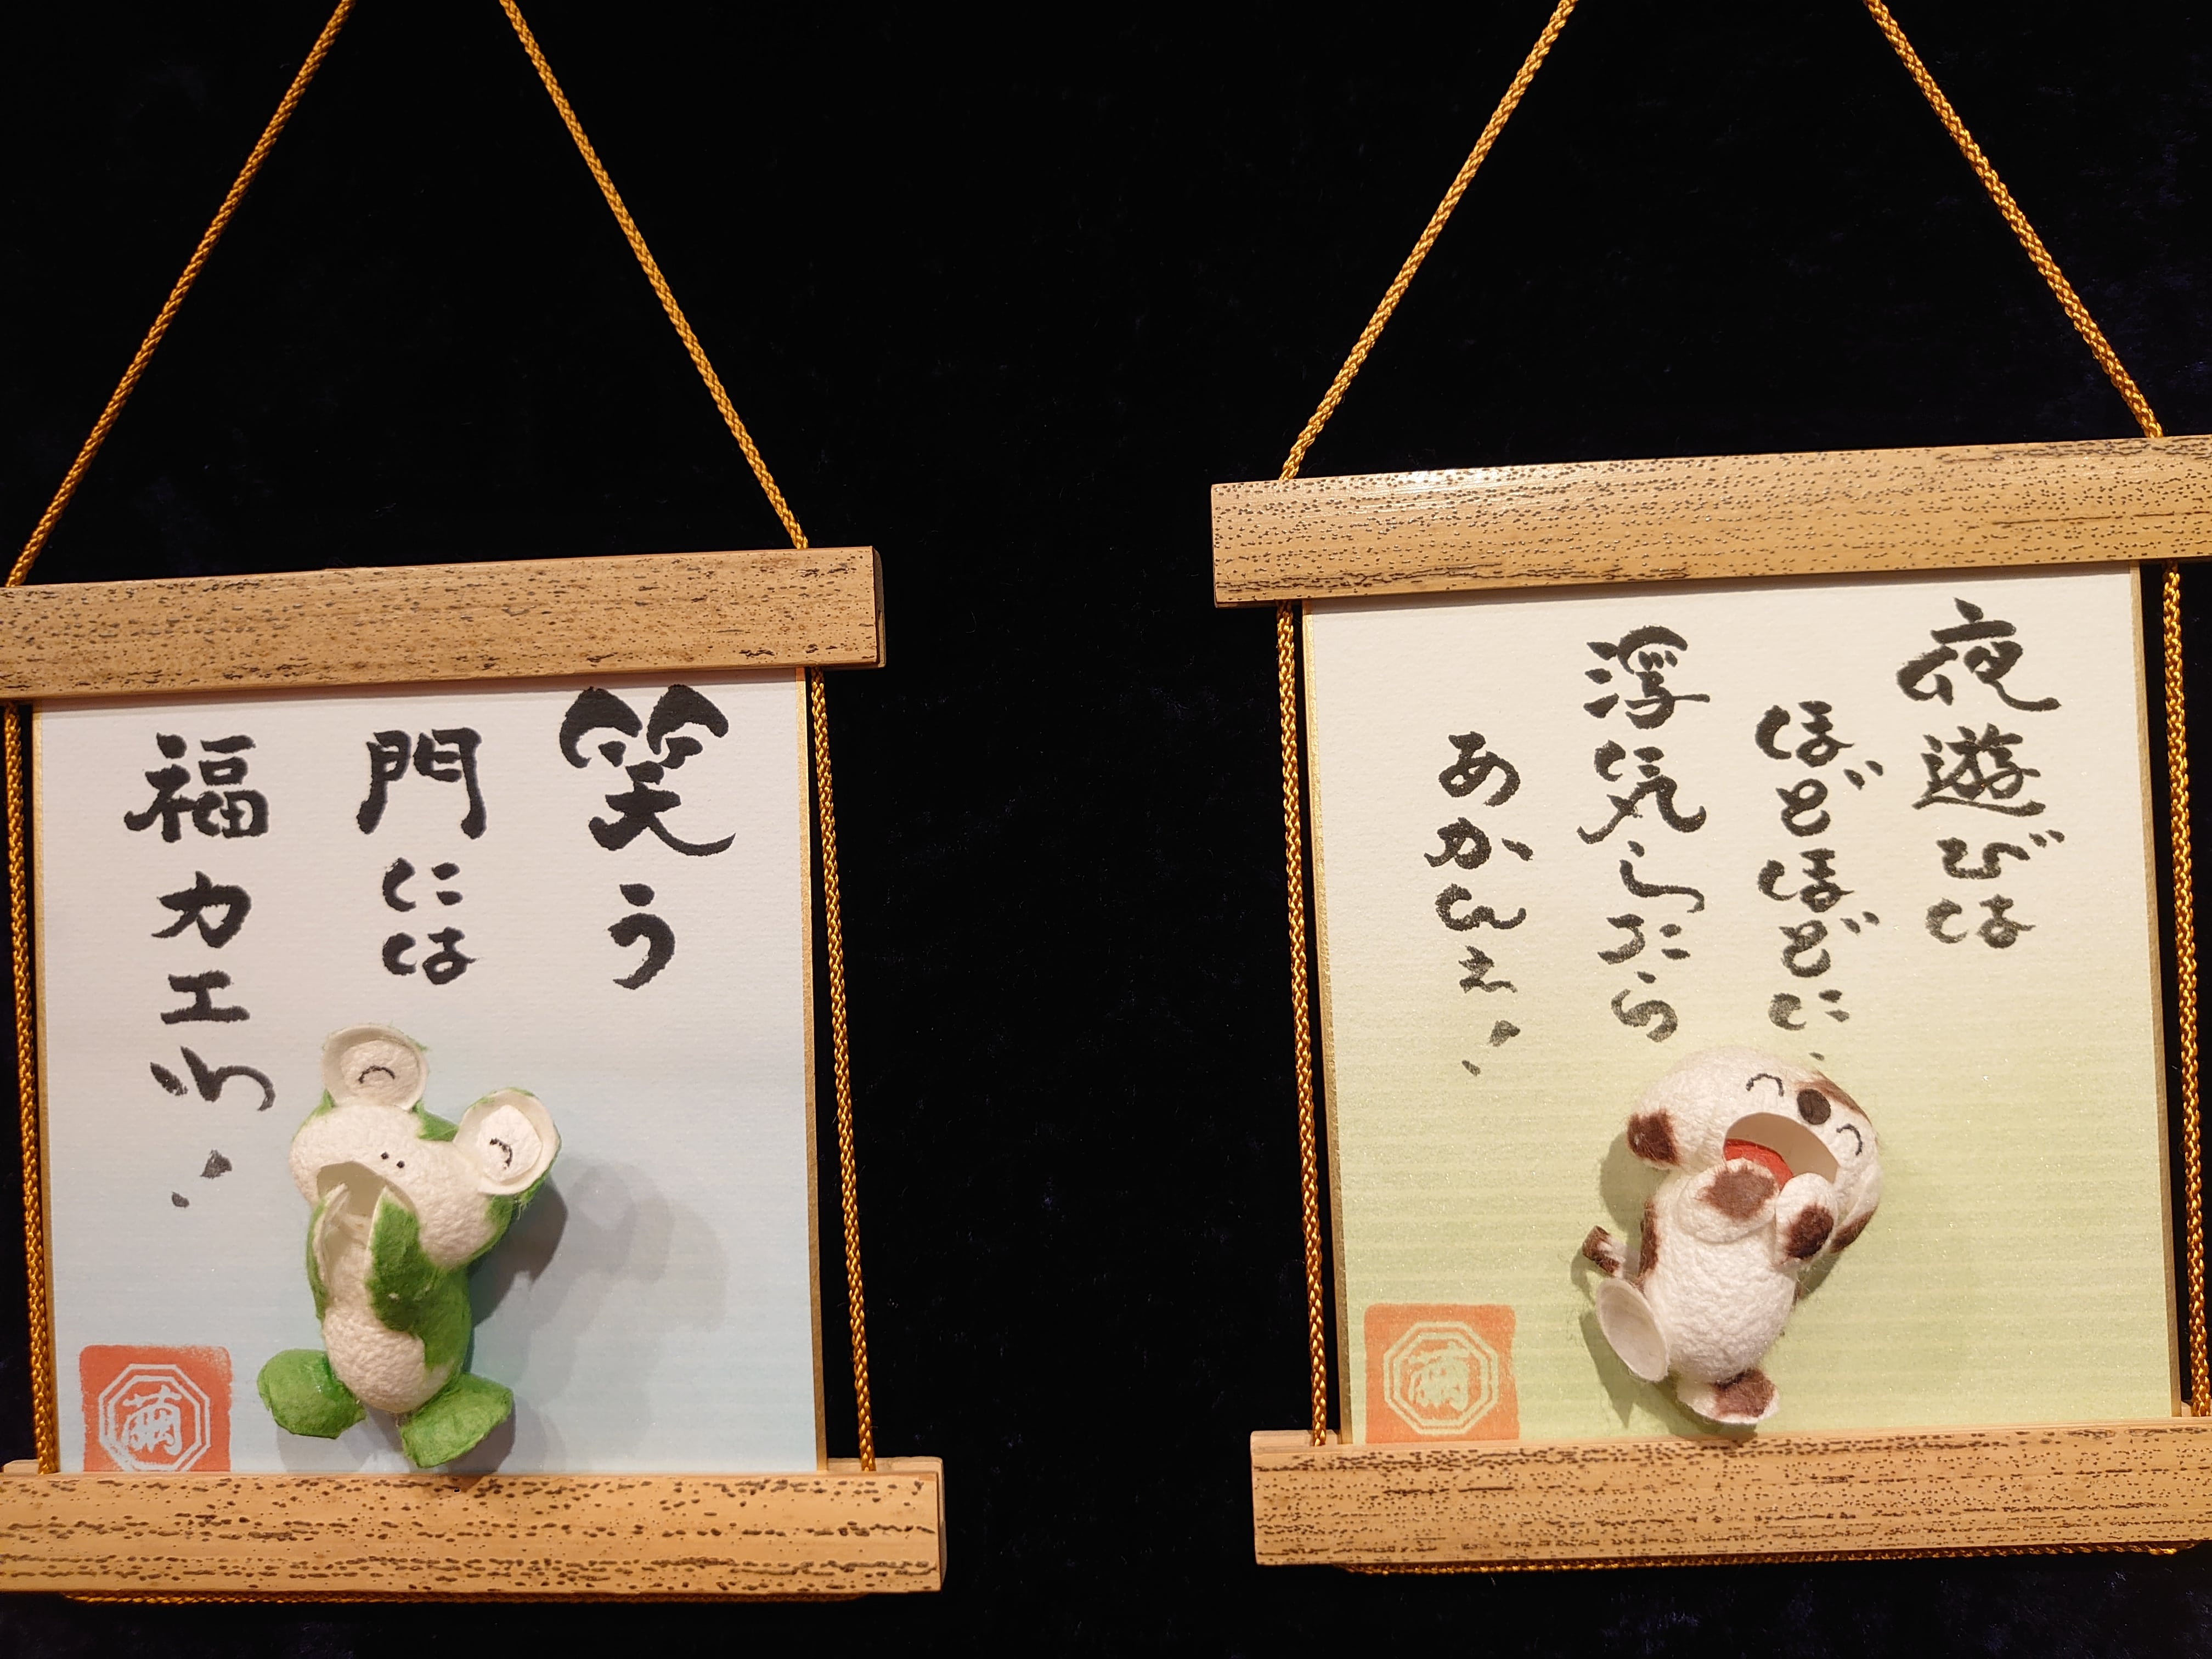 笑う
門には
福カエル!
繭
夜遊びは
ほどほどに、
浮気したら
あかんえ!
繭